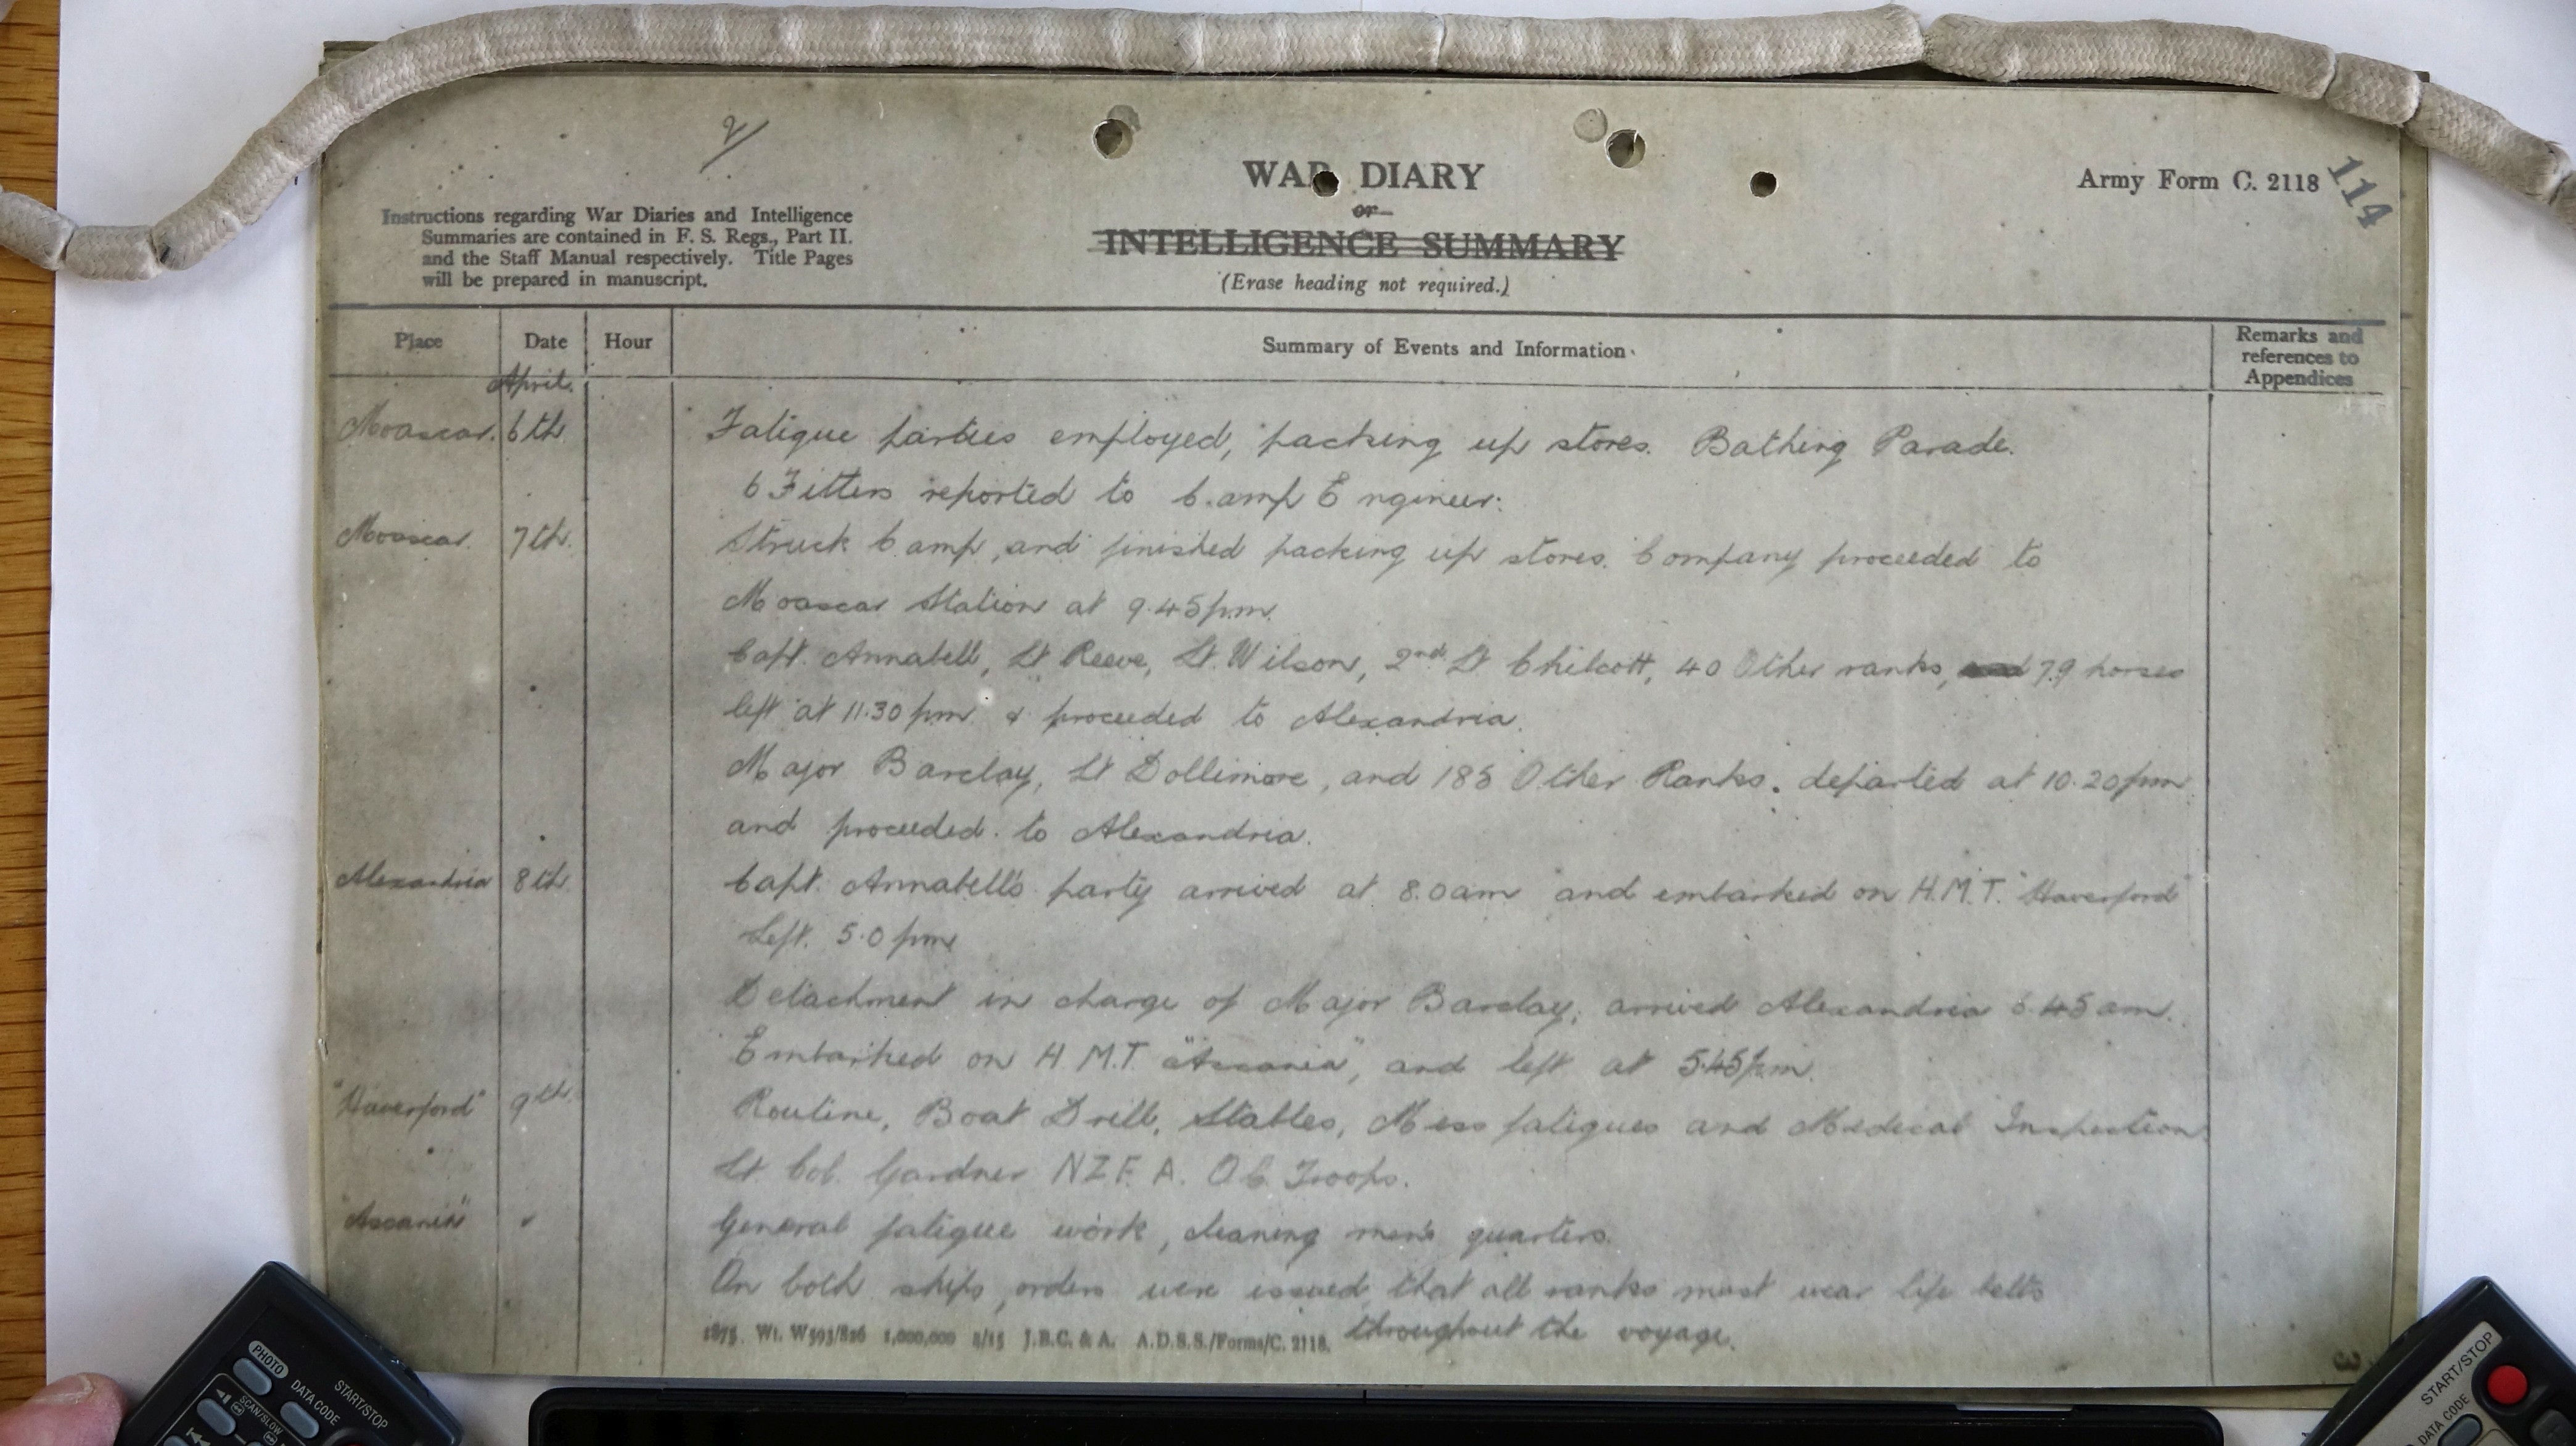 2/
WAR DIARY
or
INTELLIGENCE SUMMARY
(Erase heading not required.)
Army Form C. 2118
114
Instructions regarding War Diaries and Intelligence
Summaries are contained in F. S. Regs., Part II.
and the Staff Manual respectively. Title Pages
will be prepared in manuscript.
Place Date Hour Summary of Events and Information Remarks and references to Appendices
April.
Moascar. 6th Fatigue parties employed, packing up stores. Bathing Parade.
6 Fitters reported to Camp Engineer.
Moascar. 7th. Struck Camp, and finished packing up stores. Company proceeded to
Moascar Station at 9.45 p.m.
Capt. Annabell, Lt Reeve, Lt. Wilson, 2nd Lt Chilcott, 40 Other ranks, and 79 horses
left at 11.30 pm & proceeded to Alexandria.
Major Barclay, Lt Dollimore, and 185 Other Ranks. departed at 10.20 pm
and proceeded to Alexandria.
Alexandria 8th Capt. Annabell's party arrived at 8.0 am and embarked on H.M.T. "Haverford"
Left. 5.0 pm
Detachment in charge of Major Barclay, arrived Alexandria 6.45 am.
Embarked on H.M.T. "Ascania", and left at 5.45 pm.
"Haverford" 9th. Routine, Boat Drill, Stables, Mess fatigues and Medical Inspection.
Lt. Col. Gardner N.Z.F.A. O.C. Troops.
"Ascania" " General fatigue work, cleaning men's quarters.
On both ships, orders were issued that all ranks must wear life belts
throughout the voyage.
1875 Wt. W593/826 1,000,000 4/15 J.B.C. & A. A.D.S.S./Forms/C. 2118.
3
PHOTO
DATA CODE
START/STOP
SCAN/SLOW
START/STOP
DATA CODE